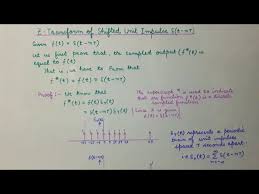 Z-Transform of Shifted Unit Impulse δ(t-nT)
Given f(t) = δ(t-nT)
Let us first prove that, the sampled output (f*(t)) is
equal to f(t)
That is, we have to prove that
f*(t) = f(t) = δ(t-nT)
Proof:- We know that
f*(t) = f(t) δT(t)
The superscript * is used to indicate
that the function f*(t) is a discrete
sampled function
Since f is
given δ(t-nT)
f(t-nT)
δT(t) represents a periodic
train of unit impulses
spaced T seconds apart
i.e. δT(t) = Σ δ(t-nT)
n=-∞